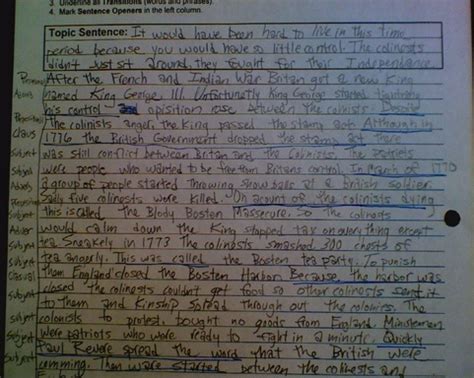 3. Underline all Transitions (words and phrases).
4. Mark Sentence Openers in the left column.
Topic Sentence: It would have been hard to live in this time
period because you would have so little control. The colinests
didn't just sit around, they fought for their Independance.
After the French and Indian War Britan got a new King
named King George III. Unfortunetly King George started tightning
his control and opisition rose between the colinists. Despite
The colinists anger, the King passed the stamp act. Although in
Claus 1776 the British Government dropped the stamp act there
Subject was still conflict between Britan and the Colonies. The patriets
Subject were people who wanted to be free from Britans control. In March of 1770
Adverb a group of people started throwing snow balls at a british soldier.
Sadly five colinests were killed. On acount of the colinists dying
Subject this is called the Blody Boston Massecure. So the colinests
Adver would calm down the King stopped tax on everything except
Subject tea. Sneakely in 1773 The colinests smashed 300 chests of
Subject tea angerly. This was called the Boston tea party. To punish
Casual them England closed the Bosten Harbor. Because the harbor was
Subject closed the colinests couldn't get food so other colinests sent it
to them and Kinship spread through out the colonies. The
Subject colonists to protest, bought no goods from England. Minutemen
Subject were patriots who were ready to fight in a minute. Quickly
Subject Paul Revere spread the word that the British were
comming. Then war started between the colinests and